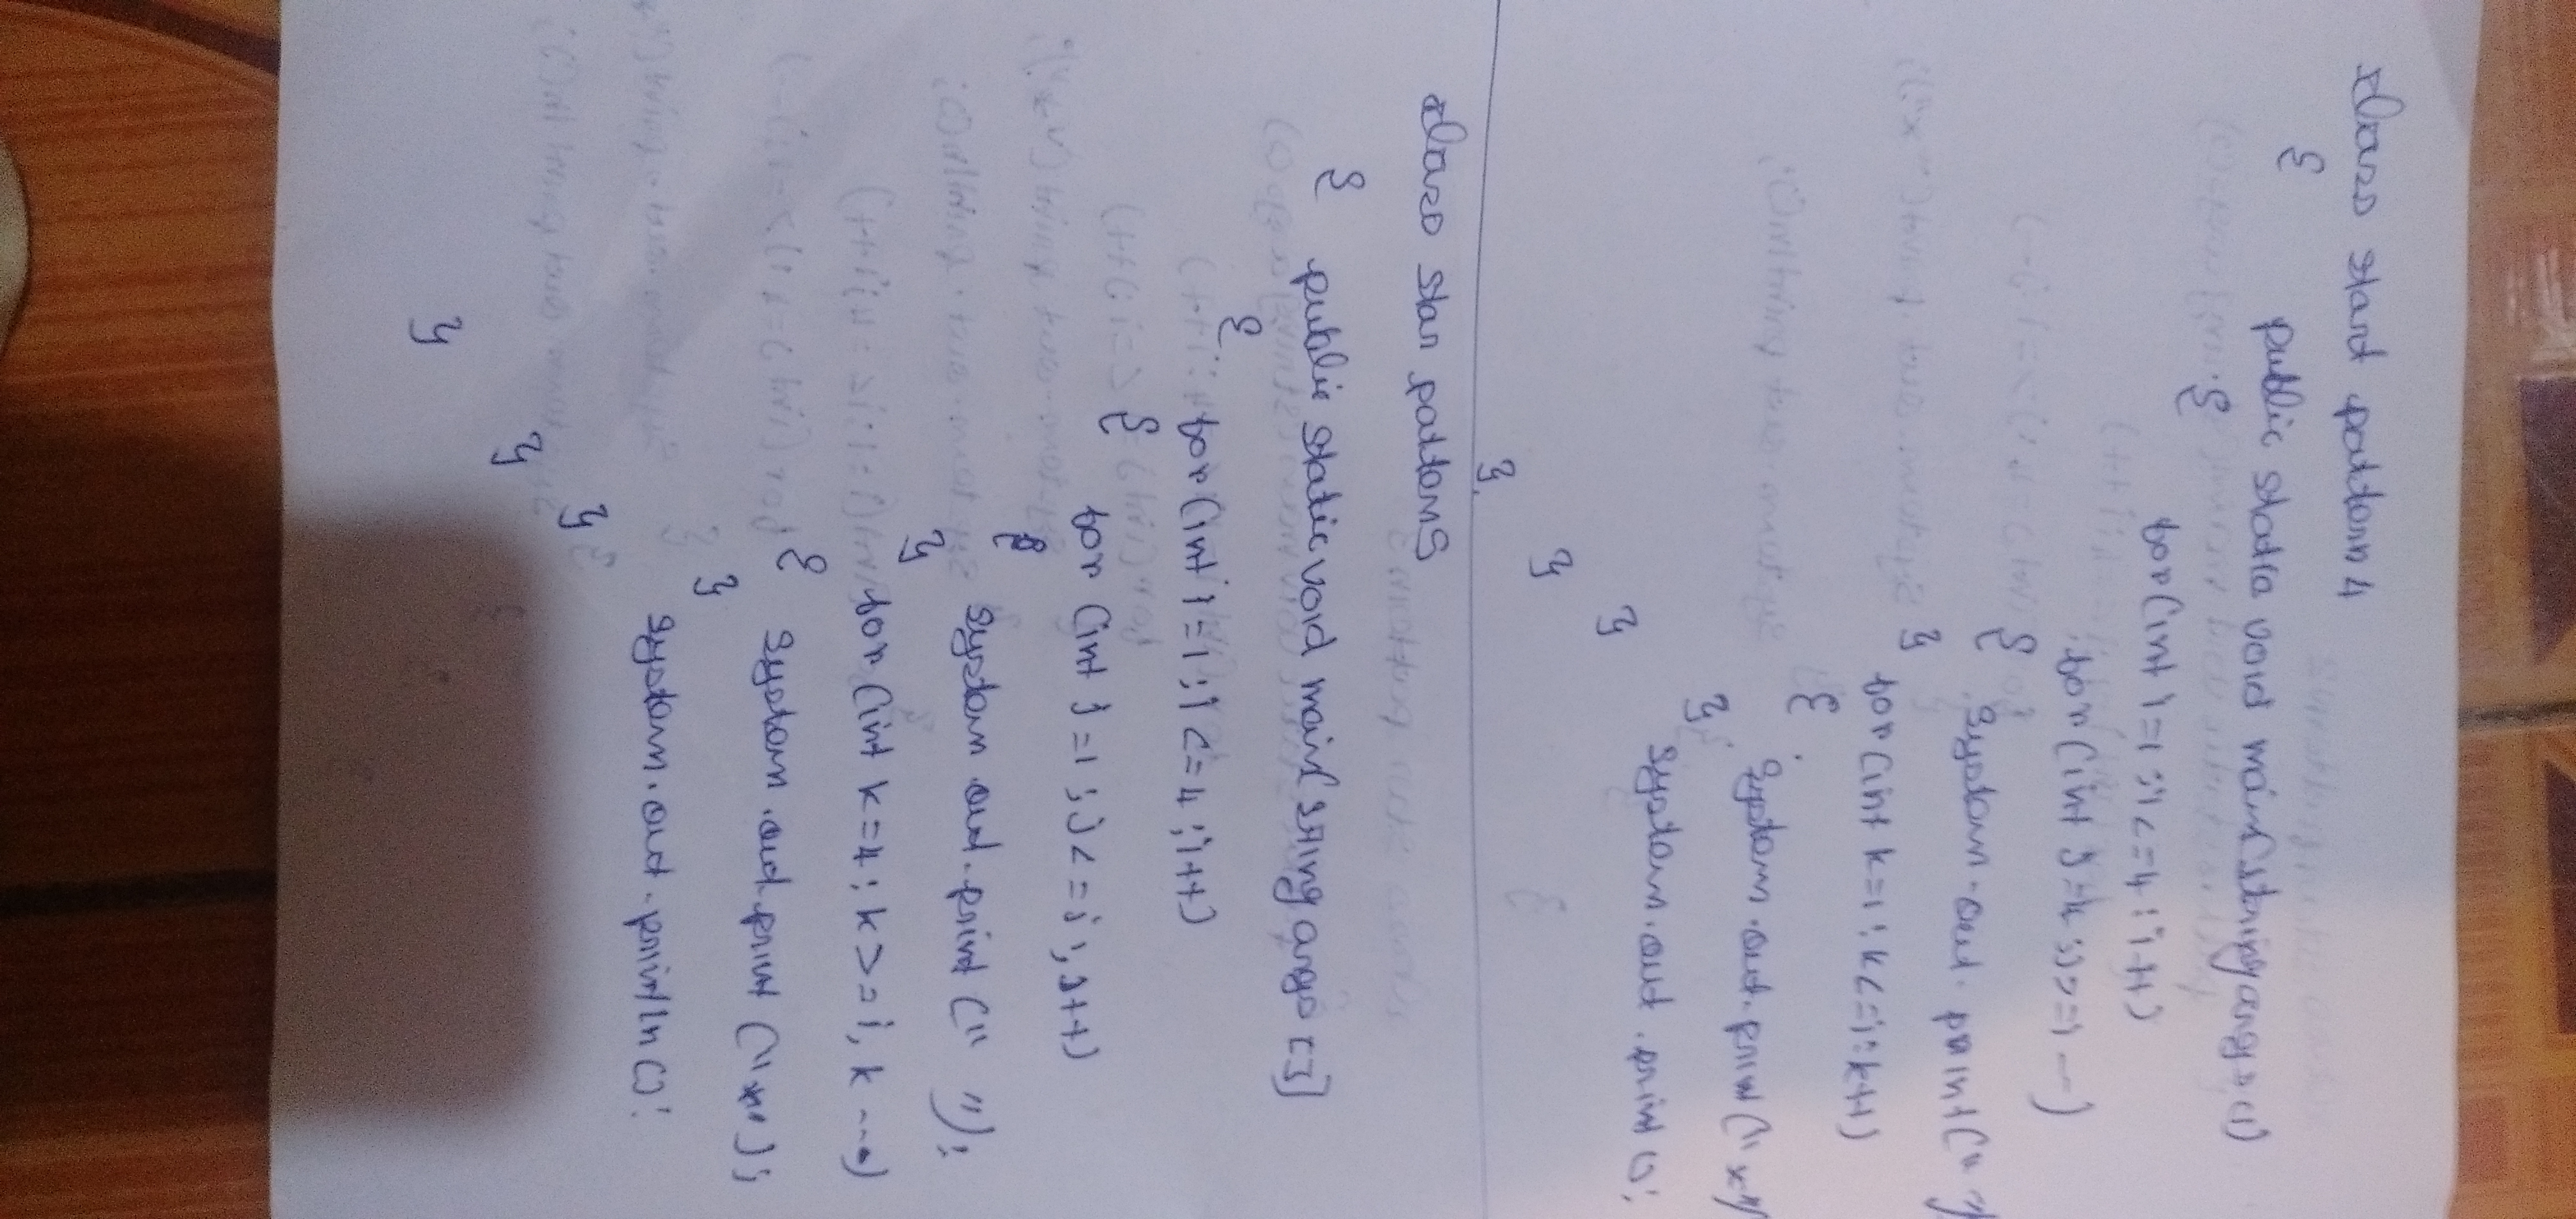 class start pattern 4
{
public static void main(string args())
{
for(int i=1;i<=4;i++)
for(int j=4;j>=i--)
{
system.out.print(" ");
}
for(int k=1;k<=i;k++)
{
system.out.print("*")
}
system.out.print();
}
}
}
class star pattern5
{
public static void main(sring args[])
{
for(int i=1;i<=4;i++)
{
for(int j=1;j<=i;j++)
{
system out.print(" ");
}
for(int k=4;k>=i,k--)
{
system.out.print("*");
}
system.out.println();
}
}
}